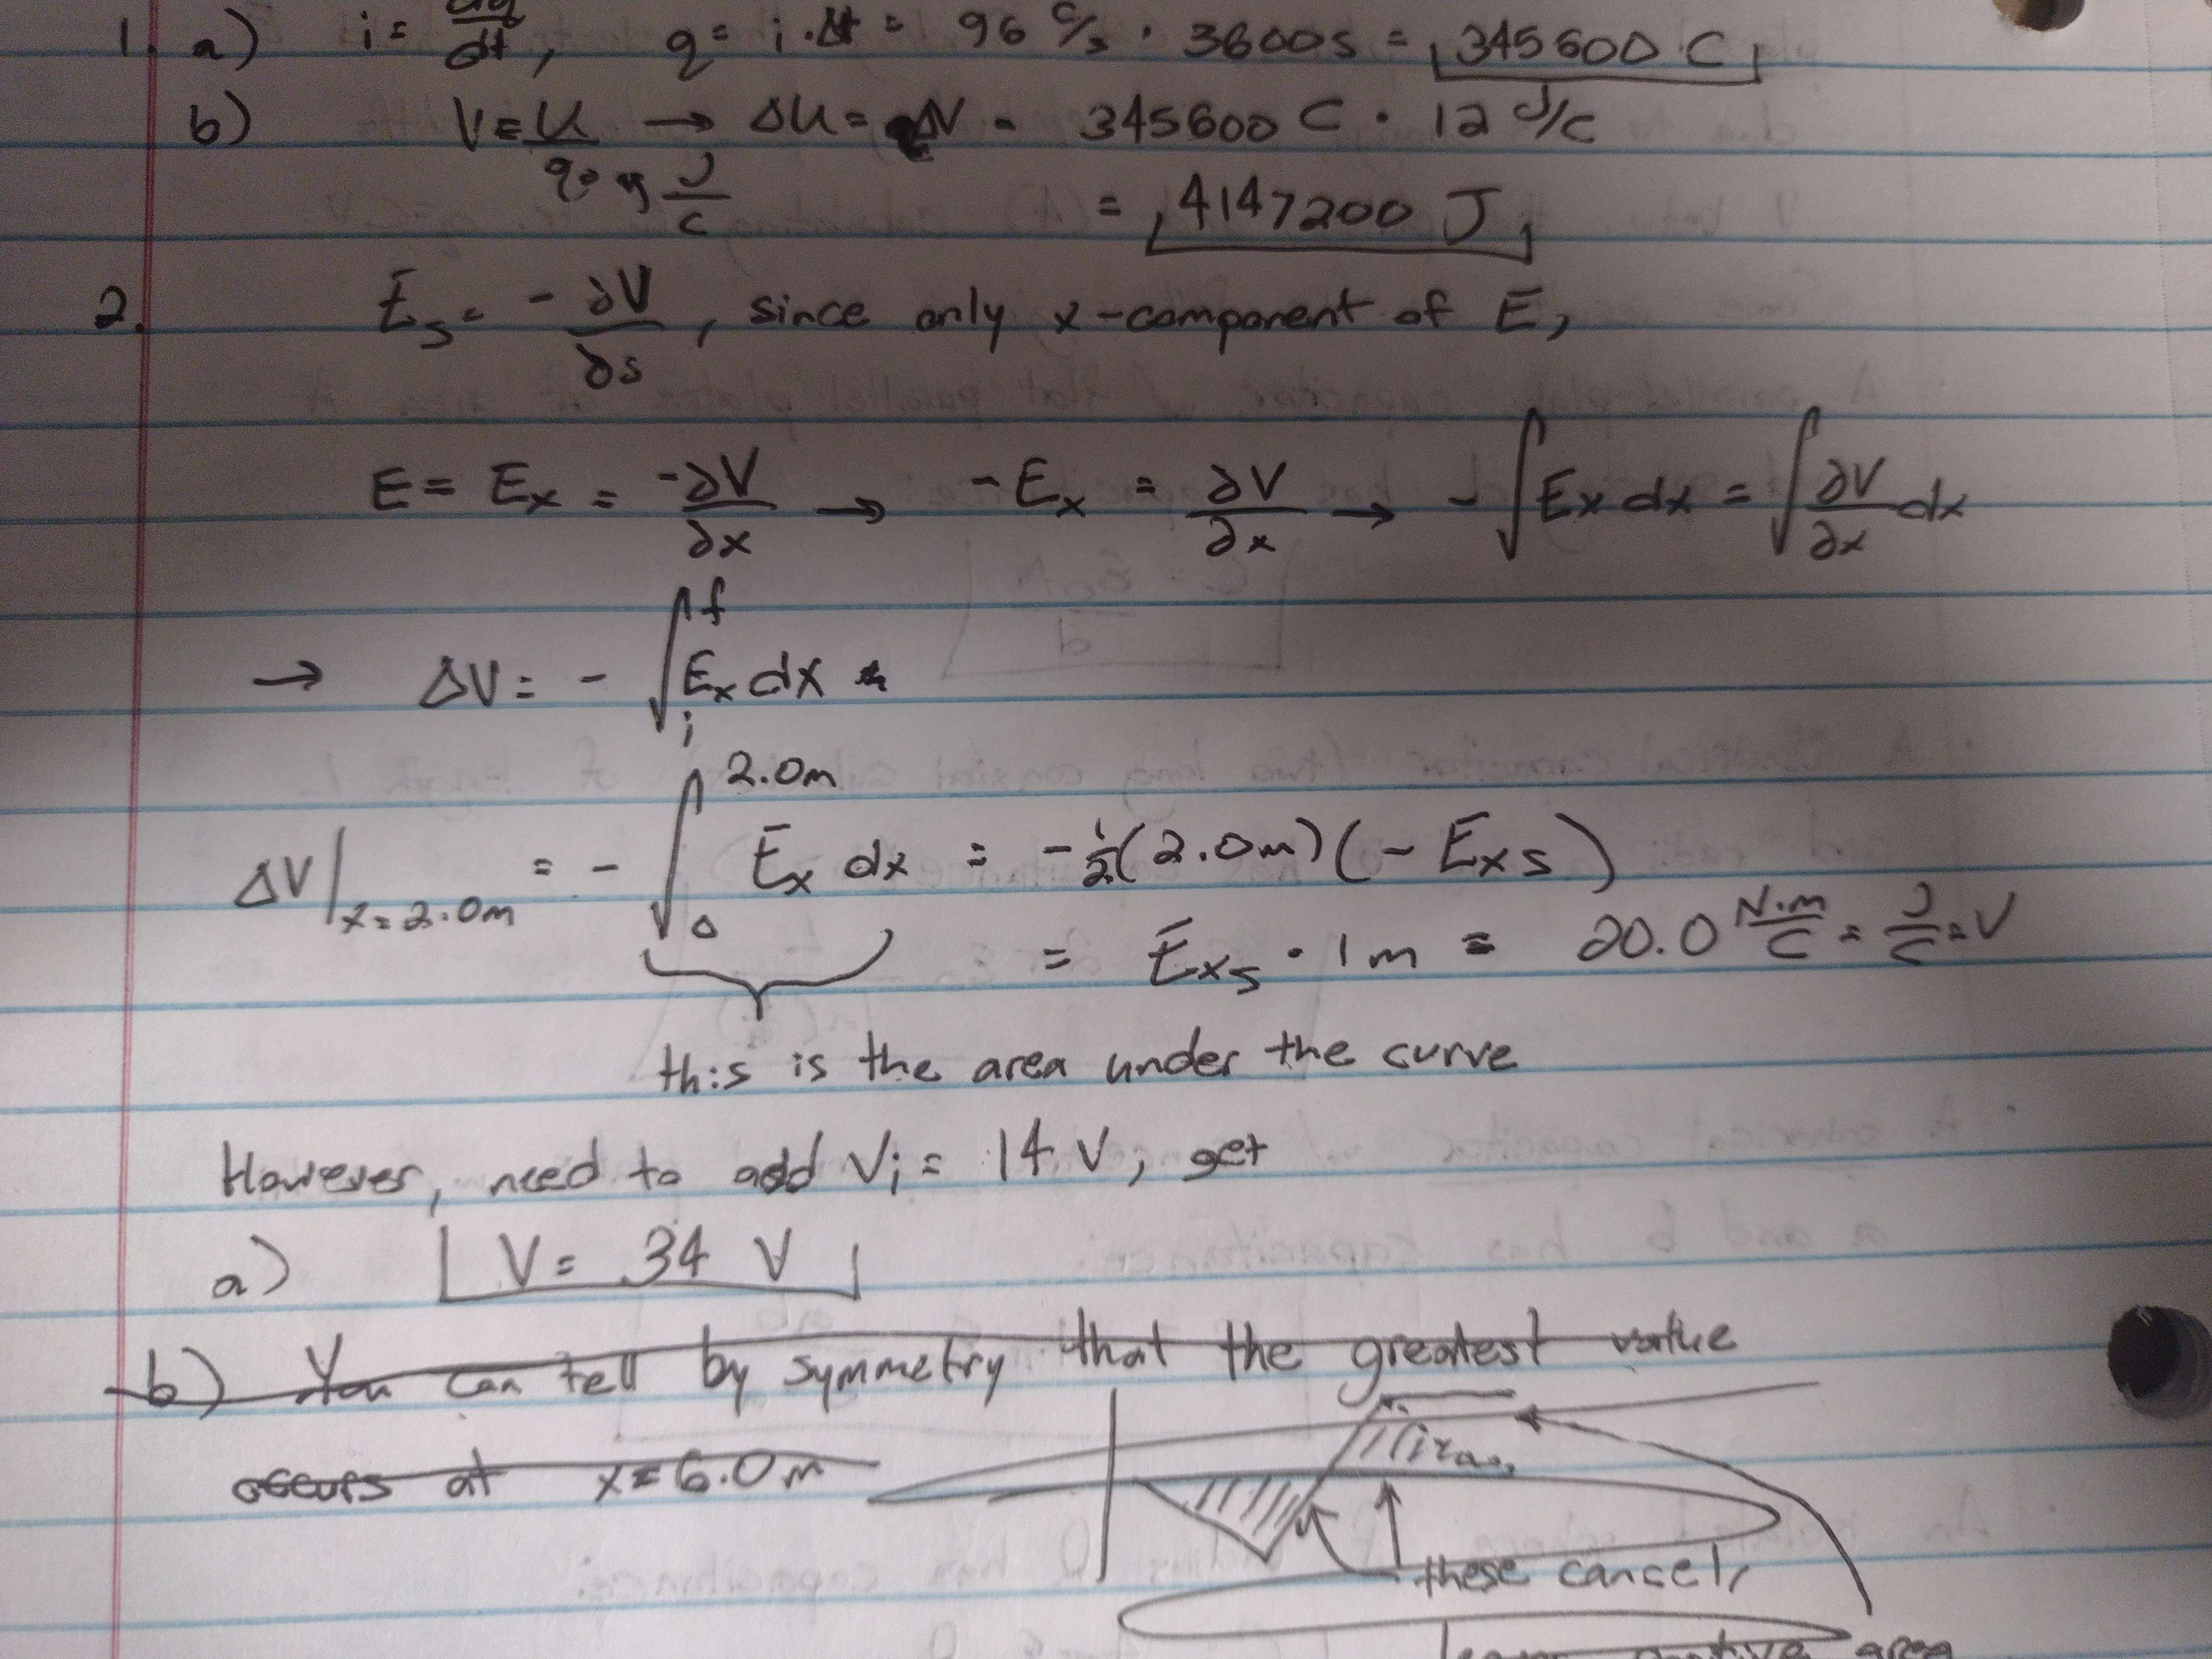 1. a) i = dq/dt, q = i·Δt = 96 C/s · 3600s = 345600 C
b) V = U/q → ΔU = qΔV = 345600 C · 12 J/C
J/C
= 4147200 J
2. E_s = -∂V/∂s, since only x-component of E,
E = E_x = -∂V/∂x → -E_x = ∂V/∂x → -∫E_x dx = ∫∂V/∂x dx
→ ΔV = -∫_i^f E_x dx
ΔV|_x=2.0m = -∫_0^2.0m E_x dx = -1/2(2.0m)(-E_xs)
= E_xs · 1m = 20.0 N·m/C = J/C = V
this is the area under the curve
However, need to add V_i = 14 V, get
a) V = 34 V
b) You can tell by symmetry that the greatest value
occurs at x = 6.0m
these cancel,
positive area